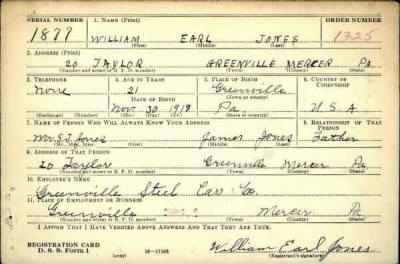 SERIAL NUMBER 1. NAME (Print) ORDER NUMBER
1877 WILLIAM EARL JONES 1325
(First) (Middle) (Last)
2. ADDRESS (Print)
20 TAYLOR GREENVILLE MERCER Pa.
(Number and street or R. F. D. number) (Town) (County) (State)
3. TELEPHONE 4. AGE IN YEARS 5. PLACE OF BIRTH 6. COUNTRY OF CITIZENSHIP
None 21 Greenville
DATE OF BIRTH (Town or county)
Nov. 30 1918 Pa. U.S.A
(Exchange) (Number) (Mo.) (Day) (Yr.) (State or country)
7. NAME OF PERSON WHO WILL ALWAYS KNOW YOUR ADDRESS 8. RELATIONSHIP OF THAT PERSON
Mr. S.J. Jones James Jones Father
(Mr., Mrs., Miss) (First) (Middle) (Last)
9. ADDRESS OF THAT PERSON
20 Taylor Greenville Mercer Pa.
(Number and street or R. F. D. number) (Town) (County) (State)
10. EMPLOYER'S NAME
Greenville Steel Car Co.
11. PLACE OF EMPLOYMENT OR BUSINESS
Greenville Mercer Pa
(Number and street or R. F. D. number) (Town) (County) (State)
I AFFIRM THAT I HAVE VERIFIED ABOVE ANSWERS AND THAT THEY ARE TRUE.
REGISTRATION CARD
D. S. S. FORM 1 (over) 16—17105 William Earl Jones
(Registrant's signature)